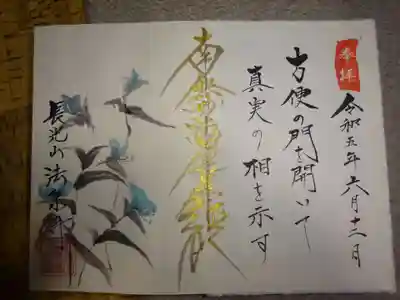 奉拝
令和五年六月十二日
方便の門を開いて
真実の相を示す
南無
長光山 法